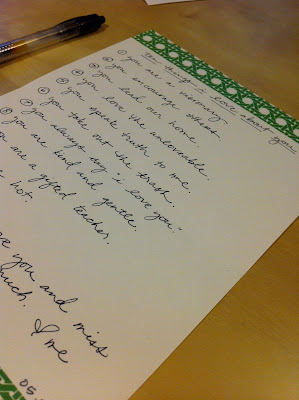 Ten things i love about you
① you are a visionary.
② you encourage others.
③ you lead our home.
④ you love the unloveable.
⑤ you speak truth to me.
⑥ you take out the trash.
⑦ you always say "i love you."
⑧ you are kind and gentle.
you are a gifted teacher.
hot.
you and miss
much.
me
05.